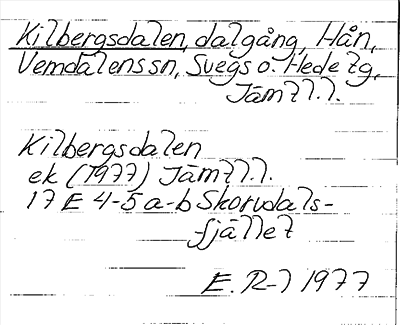 Kilbergsdalen, dalgång, Hån,
Vemdalens sn, Svegs o. Hede tg,
Jämtl.l.
Kilbergsdalen
ek (1977) Jämtl.l.
17 E 4-5 a-b Skorvdals-
fjället
E. R-l 1977